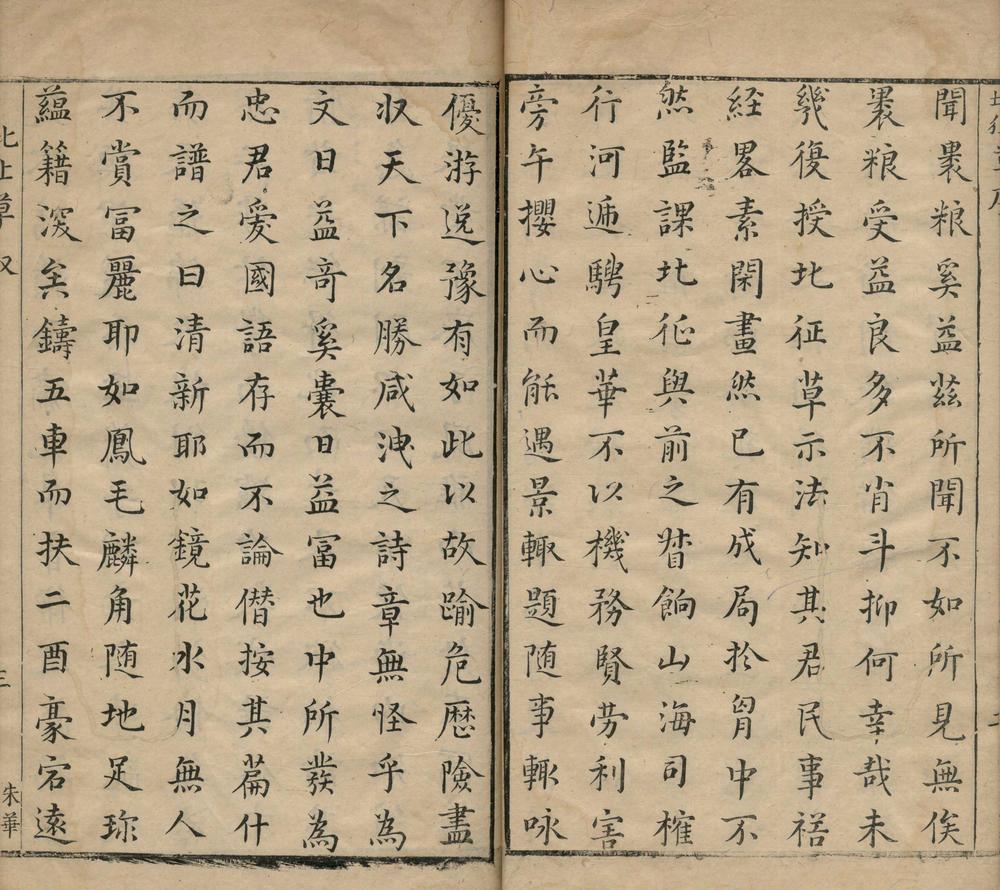 聞褁粮奚益茲所聞不如所見無俟
褁粮受益良多不肖斗抑何幸哉未
幾復授北征草示法知其君民事禔
経畧素閑畫然已有成局扵胷中不
然監課北征與前之督餉山海司榷
行河遄騁皇華不以機務賢劳利害
旁午攖心而能遇景輙題随事輙咏
優游逸豫有如此以故踰危歴險盡
収天下名勝咸洩之詩章無怪乎為
文日益竒奚囊日益富也中所發為
忠君愛國語存而不論僭按其篇什
而譜之曰清新耶如鏡花水月無人
不賞冨麗耶如鳳毛麟角随地足珎
蘊籍深矣鑄五車而扶二酉豪宕遠
北征草叙
三
朱華